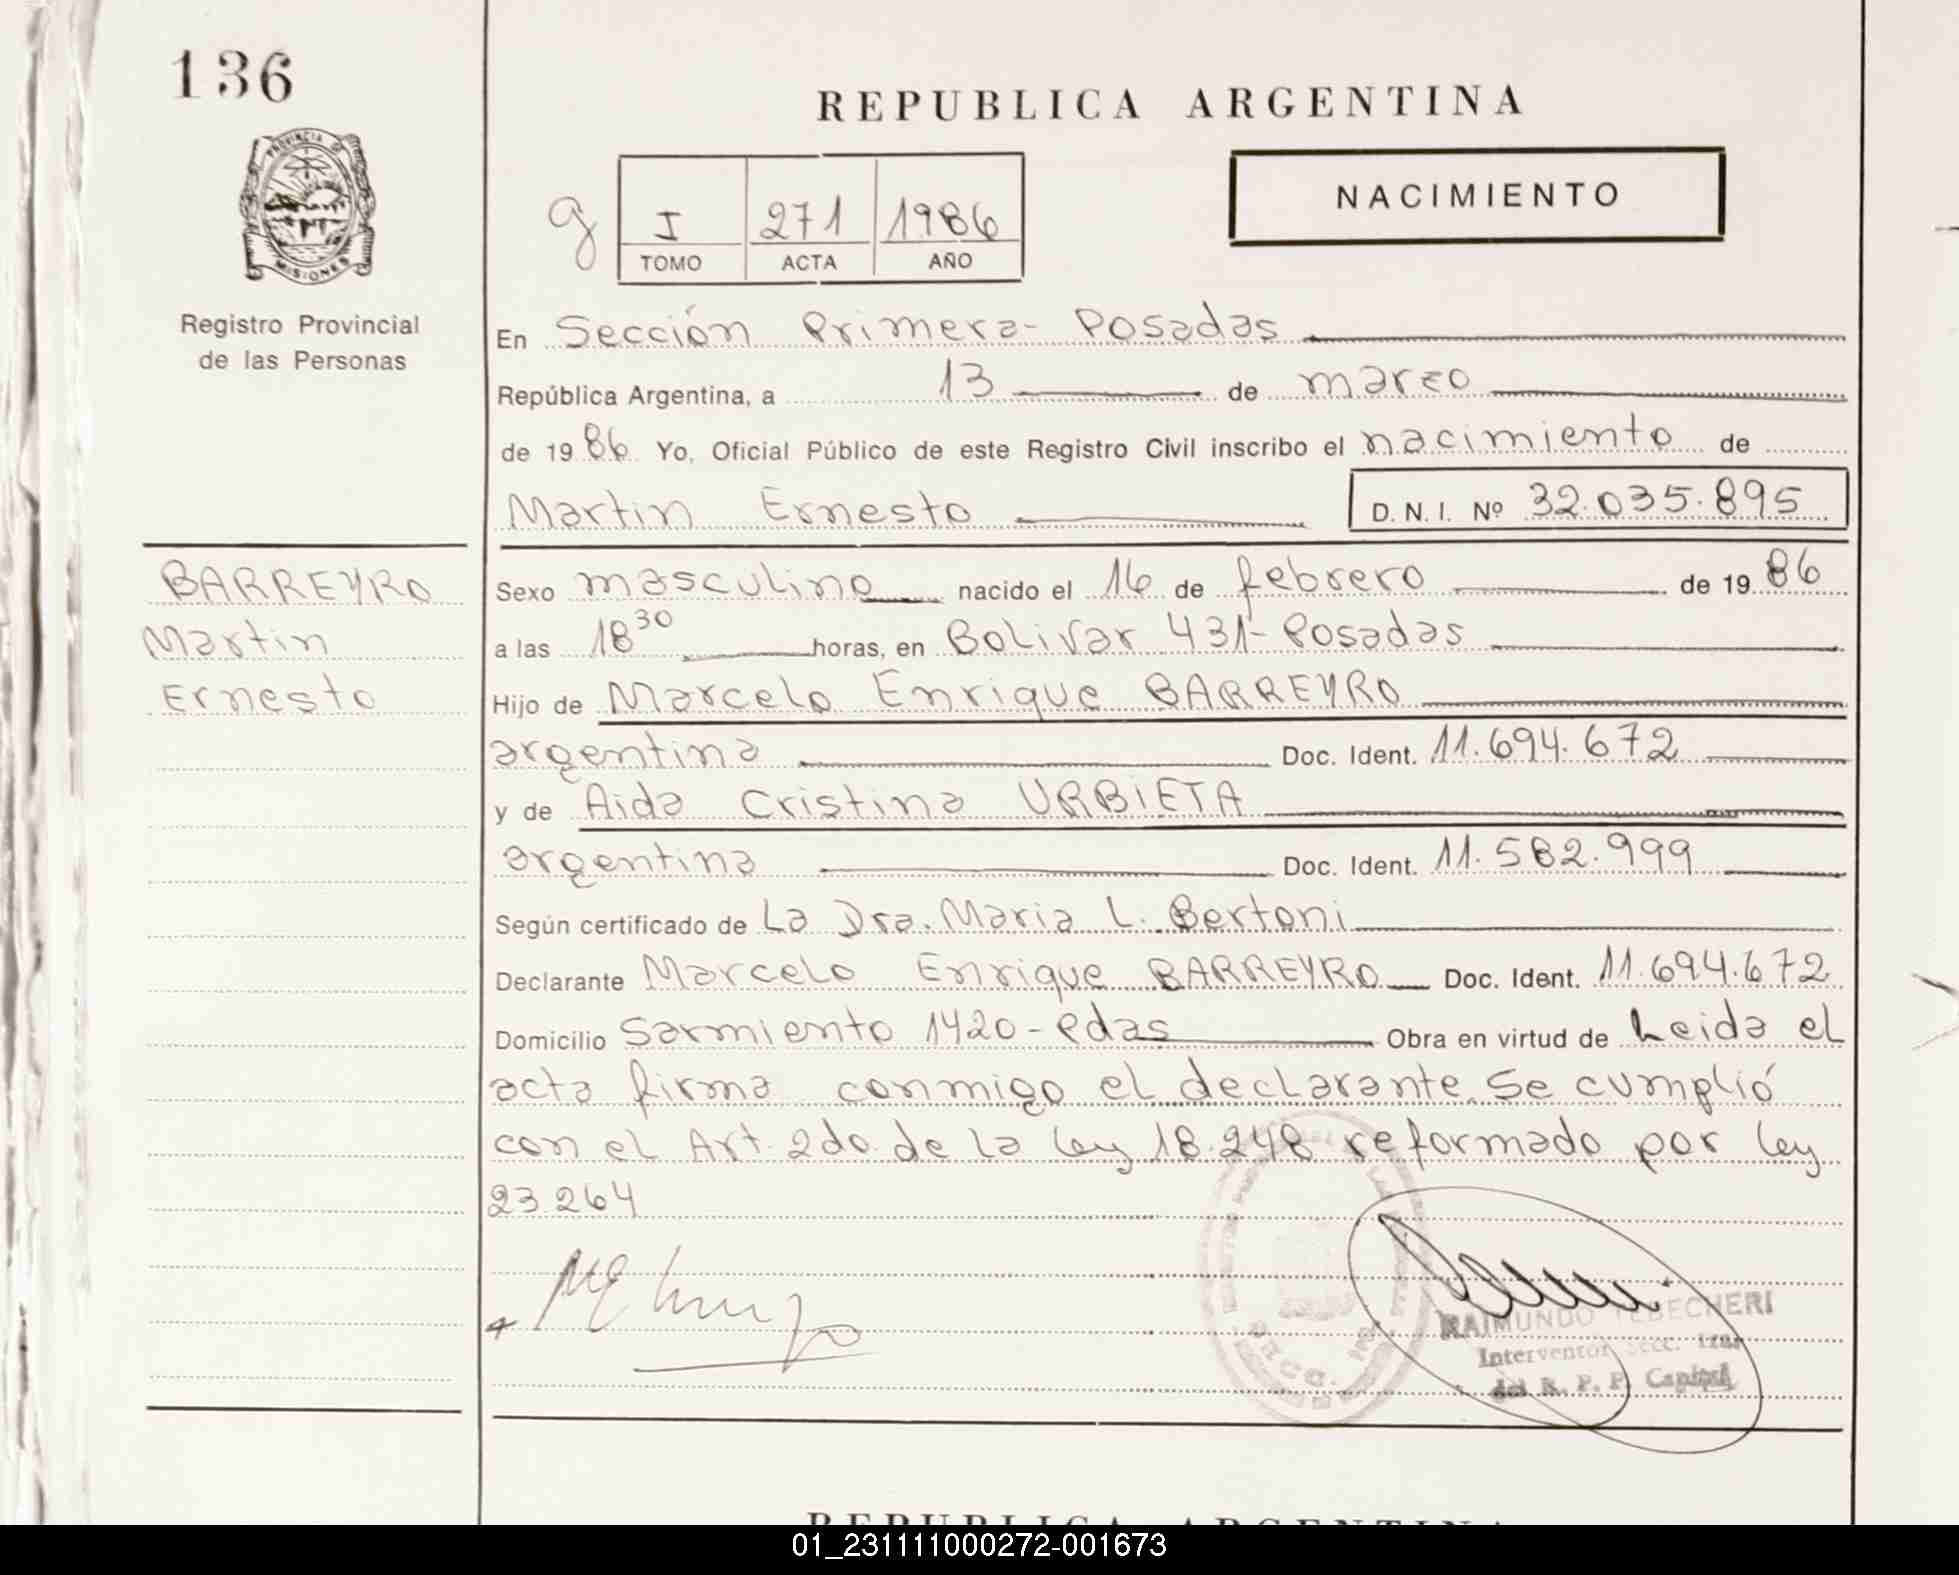 136
PROVINCIA DE
MISIONES
Registro Provincial
de las Personas
REPUBLICA ARGENTINA
g
I 271 1986
TOMO ACTA AÑO
NACIMIENTO
En Sección Primera- Posadas
República Argentina, a 13 de marzo
de 1986 Yo, Oficial Público de este Registro Civil inscribo el nacimiento de
Martin Ernesto D. N. I. Nº 32.035.895
BARREYRO
Martin
Ernesto
Sexo masculino nacido el 16 de febrero de 1986
a las 18 30 horas, en Bolivar 431- Posadas
Hijo de Marcelo Enrique BARREYRO
argentina Doc. Ident. 11.694.672
y de Aida Cristina URBIETA
argentina Doc. Ident. 11.582.999
Según certificado de La Dra. Maria L. Bertoni
Declarante Marcelo Enrique BARREYRO Doc. Ident. 11.694.672
Domicilio Sarmiento 1420 - Pdas Obra en virtud de Leida el
acta firma conmigo el declarante. Se cumplió
con el Art. 2do. de la ley 18.248 reformado por ley
23.264
RAIMUNDO TEBECHERI
Interventor Secc. 1ra.
del R. P. P. Capital
REPUBLICA ARGENTINA
01_231111000272-001673